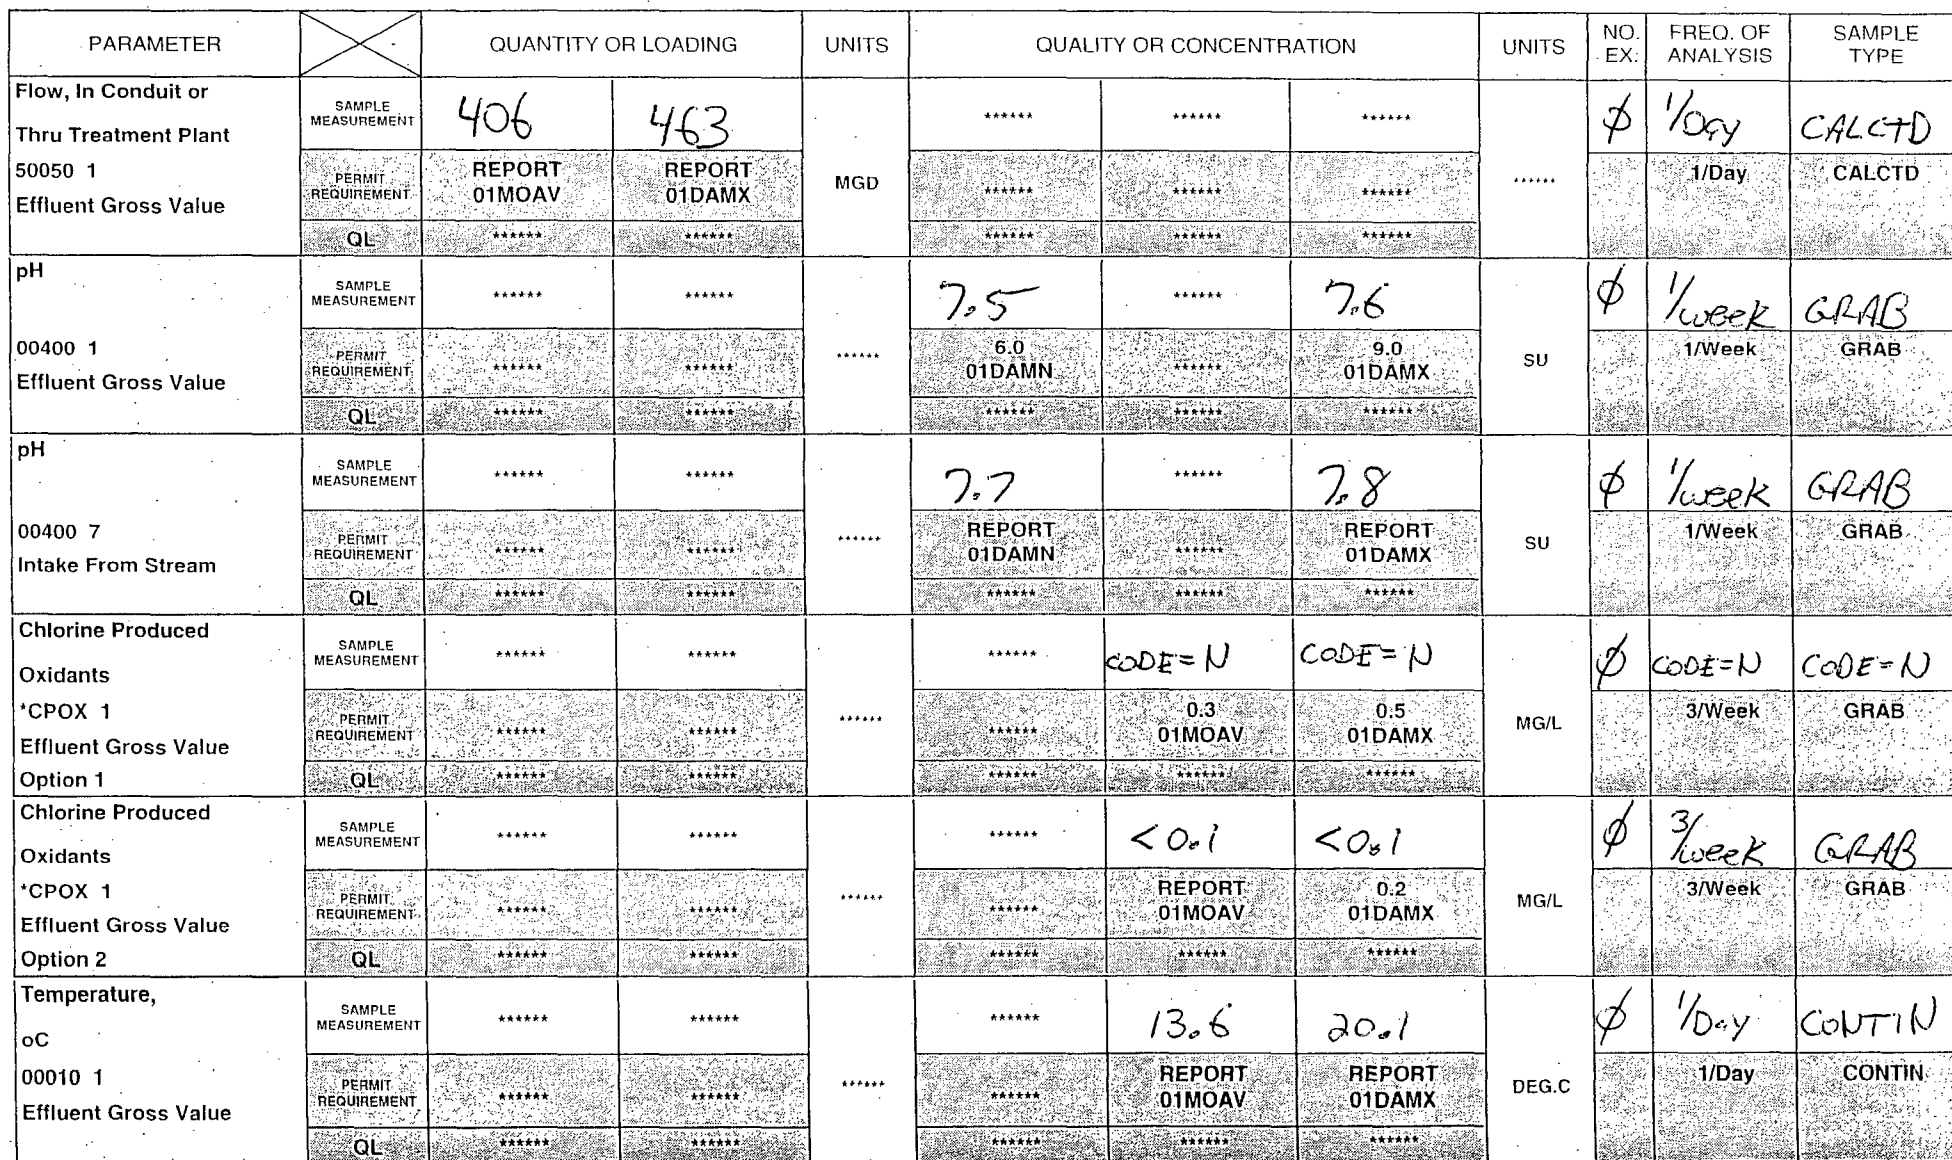 PARAMETER QUANTITY OR LOADING UNITS QUALITY OR CONCENTRATION UNITS NO. EX: FREQ. OF ANALYSIS SAMPLE TYPE
Flow, In Conduit or
Thru Treatment Plant
50050 1
Effluent Gross Value
SAMPLE MEASUREMENT 406 463 MGD ****** ****** ****** ****** φ 1/Day CALCTD
PERMIT REQUIREMENT REPORT 01MOAV REPORT 01DAMX ****** ****** ****** 1/Day CALCTD
QL ****** ****** ****** ****** ******
pH
00400 1
Effluent Gross Value
SAMPLE MEASUREMENT ****** ****** ****** 7.5 ****** 7.6 SU φ 1/week GRAB
PERMIT REQUIREMENT ****** ****** 6.0 01DAMN ****** 9.0 01DAMX 1/Week GRAB
QL ****** ****** ****** ****** ******
pH
00400 7
Intake From Stream
SAMPLE MEASUREMENT ****** ****** ****** 7.7 ****** 7.8 SU φ 1/week GRAB
PERMIT REQUIREMENT ****** ****** REPORT 01DAMN ****** REPORT 01DAMX 1/Week GRAB
QL ****** ****** ****** ****** ******
Chlorine Produced
Oxidants
*CPOX 1
Effluent Gross Value
Option 1
SAMPLE MEASUREMENT ****** ****** ****** ****** CODE=N CODE=N MG/L φ CODE=N CODE=N
PERMIT REQUIREMENT ****** ****** ****** 0.3 01MOAV 0.5 01DAMX 3/Week GRAB
QL ****** ****** ****** ****** ******
Chlorine Produced
Oxidants
*CPOX 1
Effluent Gross Value
Option 2
SAMPLE MEASUREMENT ****** ****** ****** ****** <0.1 <0.1 MG/L φ 3/week GRAB
PERMIT REQUIREMENT ****** ****** ****** REPORT 01MOAV 0.2 01DAMX 3/Week GRAB
QL ****** ****** ****** ****** ******
Temperature,
oC
00010 1
Effluent Gross Value
SAMPLE MEASUREMENT ****** ****** ****** ****** 13.6 20.1 DEG.C φ 1/Day CONTIN
PERMIT REQUIREMENT ****** ****** ****** REPORT 01MOAV REPORT 01DAMX 1/Day CONTIN
QL ****** ****** ****** ****** ******